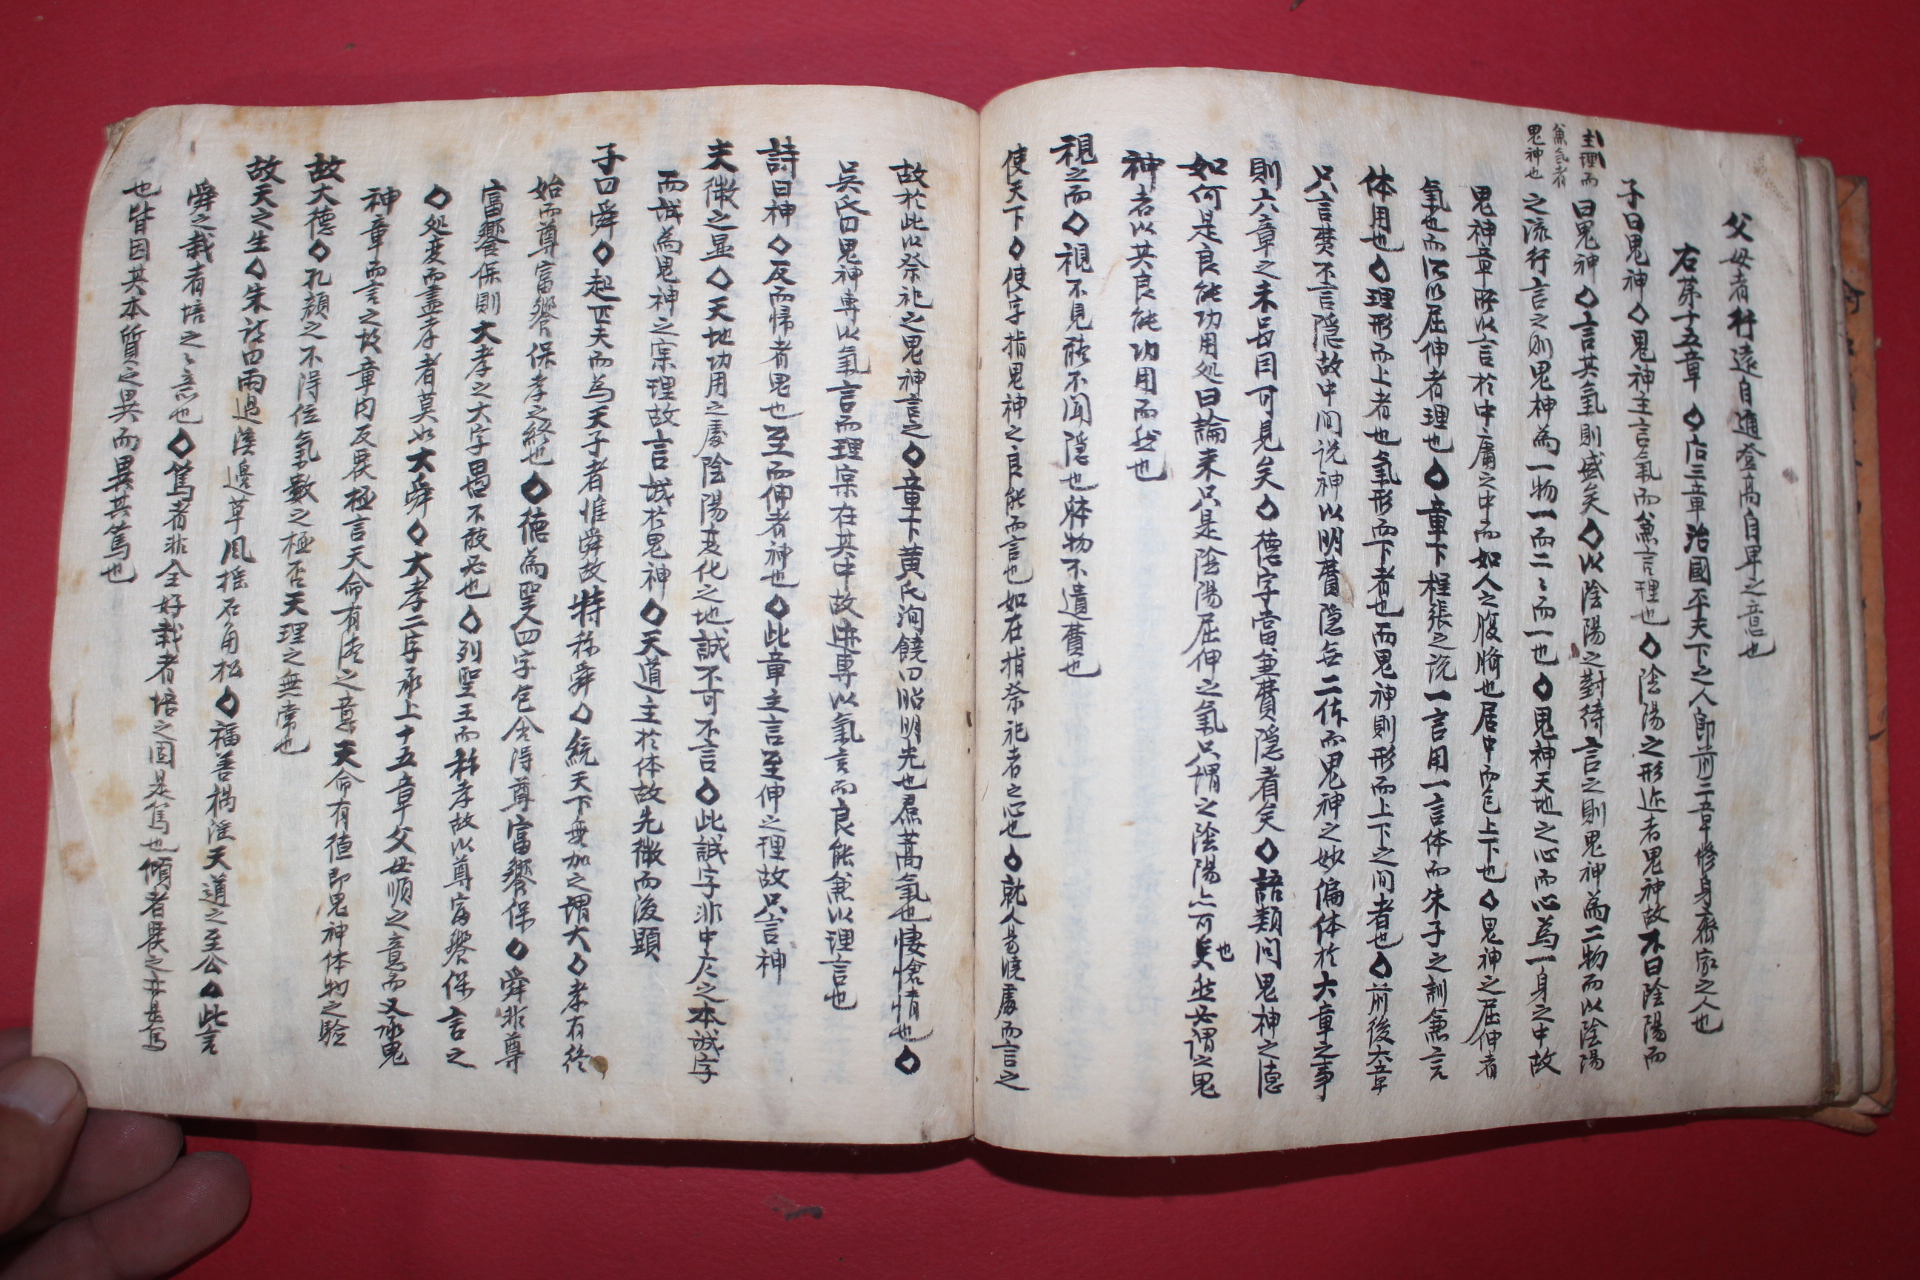 父母者行遠自迩登高自卑之意也
右苐十五章◇后三章治國平天下之人即前三章修身齊家之人也
子曰鬼神◇鬼神主言氣而兼言理也◇陰陽之形迹者鬼神故不曰陰陽而
曰鬼神◇言其氣則盛矣◇以陰陽之對待言之則鬼神為二物而以陰陽
主理而
兼氣者
鬼神也
之流行言之則鬼神為一物一而二〻而一也◇鬼神天地之心而心為一身之中故
鬼神章所以言於中庸之中而如人之腹脐也居中而包上下也◇鬼神之屈伸者
氣也而所以屈伸者理也◇章下程張之说一言用一言体而朱子之訓兼言
体用也◇理形而上者也氣形而下者也而鬼神則形而上下之间者也◇前後六章
只言費不言隠故中间说神以明費隠無二体而鬼神之妙偏体於六章之事
則六章之未嘗目可見矣◇德字當兼費隠者矣◇語類问鬼神之德
如何是良能功用処曰論来只是陰陽屈伸之氣只谓之陰陽亦可也矣然必谓之鬼
神者以其良能功用而然也
視之而◇視不見聴不闻隠也体物不遺費也
使天下◇使字指鬼神之良能而言也如在指祭祀者之心也◇就人易曉處而言之
故於此以祭祀之鬼神言之◇章下黄氏洵饒曰昭明光也焄蒿氣也悽愴情也◇
吳氏曰鬼神専以氣言而理寔在其中故迹専以氣言而良能兼以理言也
詩曰神◇反而㱕者鬼也至而伸者神也◇此章主言至伸之理故只言神
夫微之显◇天地功用之處陰陽变化之地誠不可不言◇此誠字非中庸之本誠字
而誠為鬼神之寔理故言誠於鬼神◇天道主於体故先微而後顕
子曰舜◇起匹夫而為天子者惟舜故特称舜◇統天下無加之谓大◇孝有終
始而尊富饗保孝之終也◇德為聖人四字包含得尊富饗保◇舜非尊
富饗保則大孝之大字㫷不敢必也◇列聖王而称孝故以尊富饗保言之
◇処变而盡孝者莫如大舜◇大孝二字承上十五章父母順之意而又承鬼
神章而言之故章内反覆極言天命有德之意天命有德即鬼神体物之验
故大德◇孔顔之不得位氣數之極否天理之無常也
故天之生◇朱诗曰雨過溪邊草風搖石角松◇福善禍淫天道之至公◇此言
舜之栽者培之〻意也◇篤者非全好栽者培之固是篤也傾者覆之亦是篤
也皆因其本質之異而異其篤也